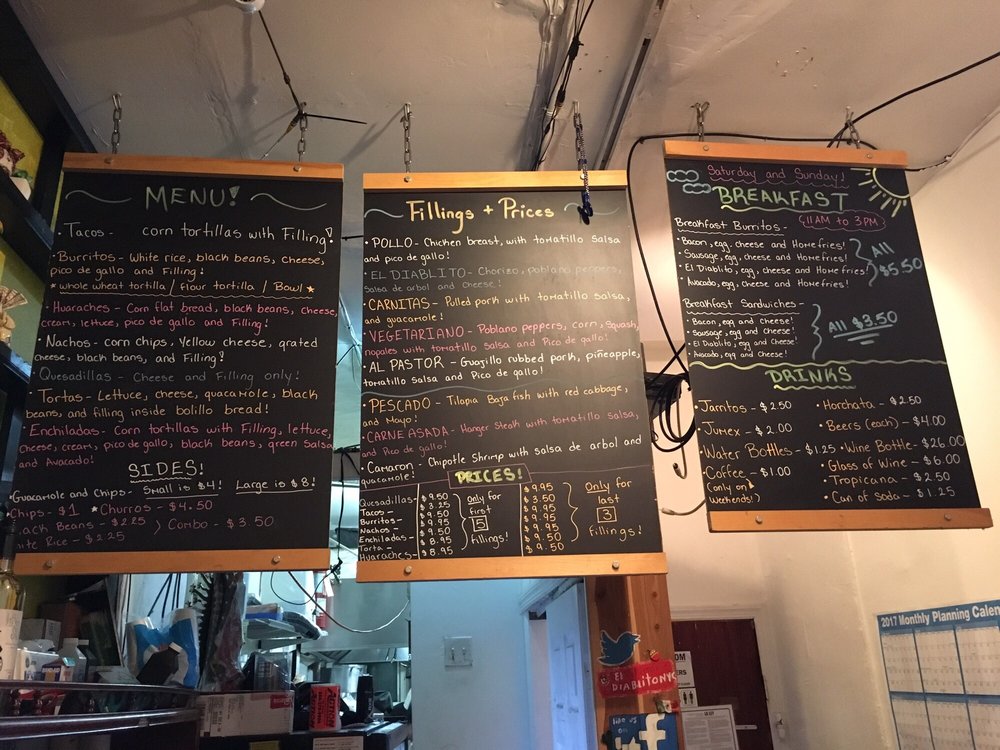 MENU!
• Tacos - corn tortillas with Filling!
• Burritos - White rice, black beans, cheese,
pico de gallo and Filling!
* whole wheat tortilla / flour tortilla / Bowl *
• Huaraches - Corn flat bread, black beans, cheese,
cream, lettuce, pico de gallo and Filling!
• Nachos - corn chips, Yellow cheese, grated
cheese, black beans, and Filling!
• Quesadillas - Cheese and Filling only!
• Tortas - Lettuce, cheese, guacamole, black
beans, and filling inside bolillo bread!
• Enchiladas - Corn tortillas with Filling, lettuce,
cheese, cream, pico de gallo, black beans, green salsa
and Avocado!
SIDES!
Guacamole and Chips - Small is $4! Large is $8!
Chips - $1 * Churros - $4.50
Black Beans - $2.25 } Combo - $3.50
White Rice - $2.25
Fillings + Prices
• POLLO - Chicken breast, with tomatillo salsa
and pico de gallo!
• EL DIABLITO - Chorizo, poblano peppers,
Salsa de arbol and Cheese!
• CARNITAS - Pulled pork with tomatillo salsa,
and guacamole!
• VEGETARIANO - Poblano peppers, corn, Squash,
nopales with tomatillo Salsa and Pico de gallo!
• AL PASTOR - Guajillo rubbed pork, piñeapple,
tomatillo salsa and Pico de gallo!
• PESCADO - Tilapia Baja fish with red cabbage,
and Mayo!
• CARNE ASADA - Hanger Steak with tomatillo salsa,
and Pico de gallo!
• Camaron - Chipotle Shrimp with salsa de arbol and
guacamole!
PRICES!
Quesadillas - $9.50 $9.95
Tacos - $3.25 $3.50
Burritos - $9.50 $9.95
Nachos - $9.95 $9.95
Enchiladas - $9.50 $9.95
Torta - $8.95 $9.50
Huaraches - $8.95 $9.50
Only for
first
5
fillings!
Only for
last
3
fillings!
Saturday and Sunday!
BREAKFAST
11AM to 3PM
Breakfast Burritos -
• Bacon, egg, cheese and Homefries!
• Sausage, egg, cheese and Homefries!
• El Diablito, egg, cheese and Homefries!
• Avocado, egg, cheese and Homefries!
All
$5.50
Breakfast Sandwiches -
• Bacon, egg and cheese!
• Sausage, egg and cheese!
• El Diablito, egg and cheese!
• Avocado, egg and Cheese!
All $3.50
DRINKS
• Jarritos - $2.50
• Jumex - $2.00
• Water Bottles - $1.25
• Coffee - $1.00
(only on
Weekends!)
• Horchata - $2.50
• Beers (each) - $4.00
• Wine Bottle - $26.00
• Glass of Wine - $6.00
• Tropicana - $2.50
• Can of Soda - $1.25
EL
DIABLITONYC
like us
on
f
2017 Monthly Planning Calen